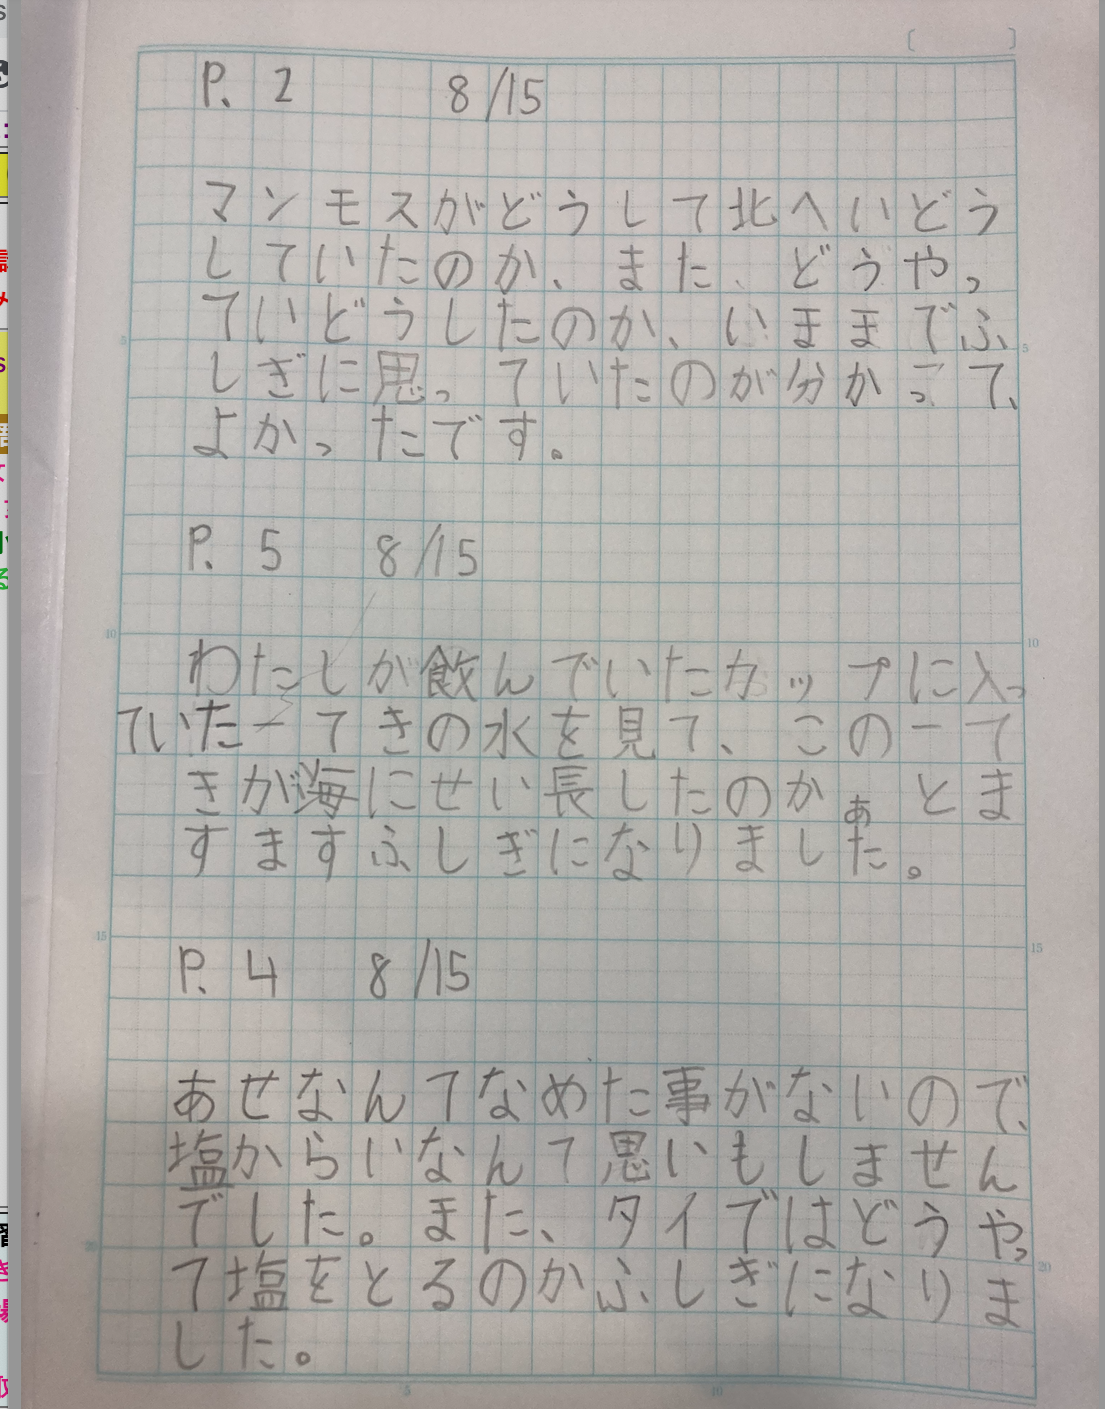 P. 2 8/15
マンモスがどうして北へいどう
していたのか、また、どうやっ
ていどうしたのか、いままでふ
しぎに思っていたのが分かって、
よかったです。
P. 5 8/15
わたしが飲んでいたカップに入っ
ていた一てきの水を見て、この一て
きが海にせい長したのかあとま
すますふしぎになりました。
P. 4 8/15
あせなんてなめた事がないので、
塩からいなんて思いもしません
でした。また、タイではどうやっ
て塩をとるのかふしぎになりま
した。